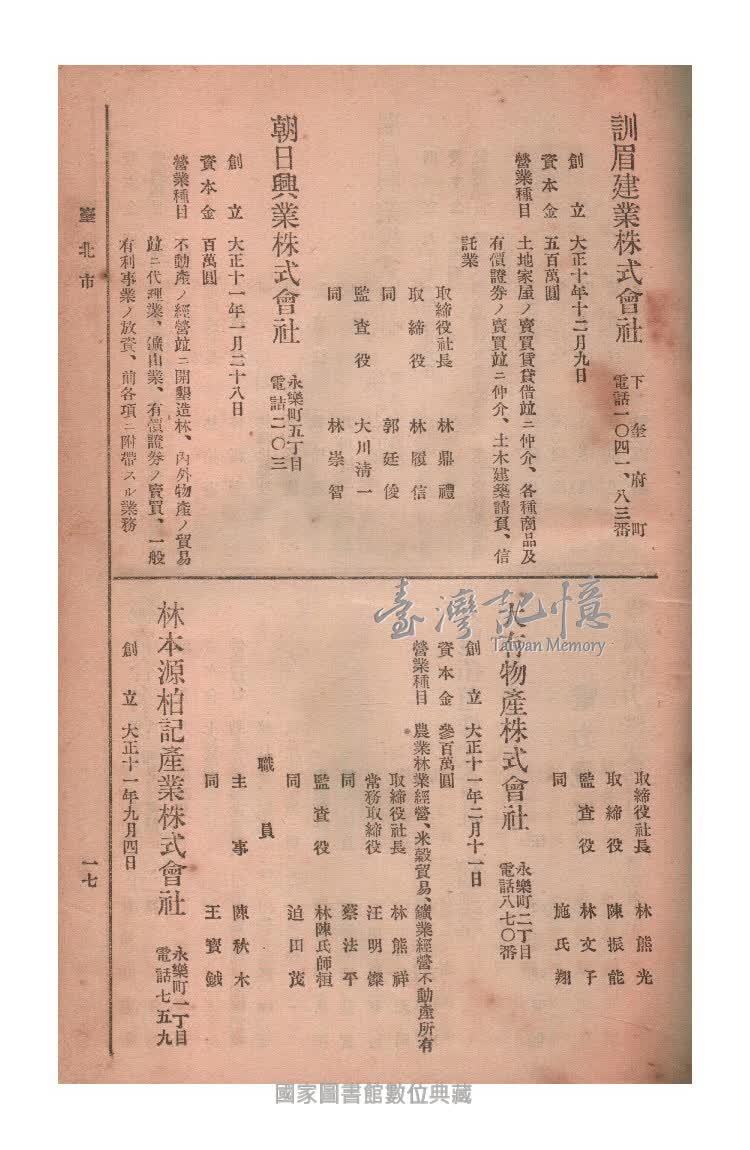 訓眉建業株式會社
下奎府町
電話一〇四一、八三番
創立 大正十年十二月九日
資本金 五百萬圓
營業種目 土地家屋ノ賣買賃貸借竝ニ仲介、各種商品及
有價證券ノ賣買竝ニ仲介、土木建築請負、信
託業
取締役社長 林鼎禮
取締役 林履信
同 郭廷俊
監査役 大川清一
同 林崇智
朝日興業株式會社
永樂町五丁目
電話二〇三
創立 大正十一年一月二十八日
資本金 百萬圓
營業種目 不動產ノ經營竝ニ開墾造林、內外物產ノ貿易
竝ニ代理業、鑛山業、有價證券ノ賣買、一般
有利事業ノ放資、前各項ニ附帶スル業務
臺北市
取締役社長 林熊光
取締役 陳振能
監査役 林文子
同 施氏翔
大有物產株式會社
永樂町二丁目
電話八七〇番
創立 大正十一年二月十一日
資本金 參百萬圓
營業種目 農業林業經營、米穀貿易、鑛業經營不動產所有
取締役社長 林熊祥
常務取締役 汪明燦
同 蔡法平
監査役 林陳氏師桓
同 迫田茂
職員
主事 陳秋木
同 王寶鉞
林本源柏記產業株式會社
永樂町一丁目
電話七五九
創立 大正十一年九月四日
一七
臺灣記憶
Taiwan Memory
國家圖書館數位典藏